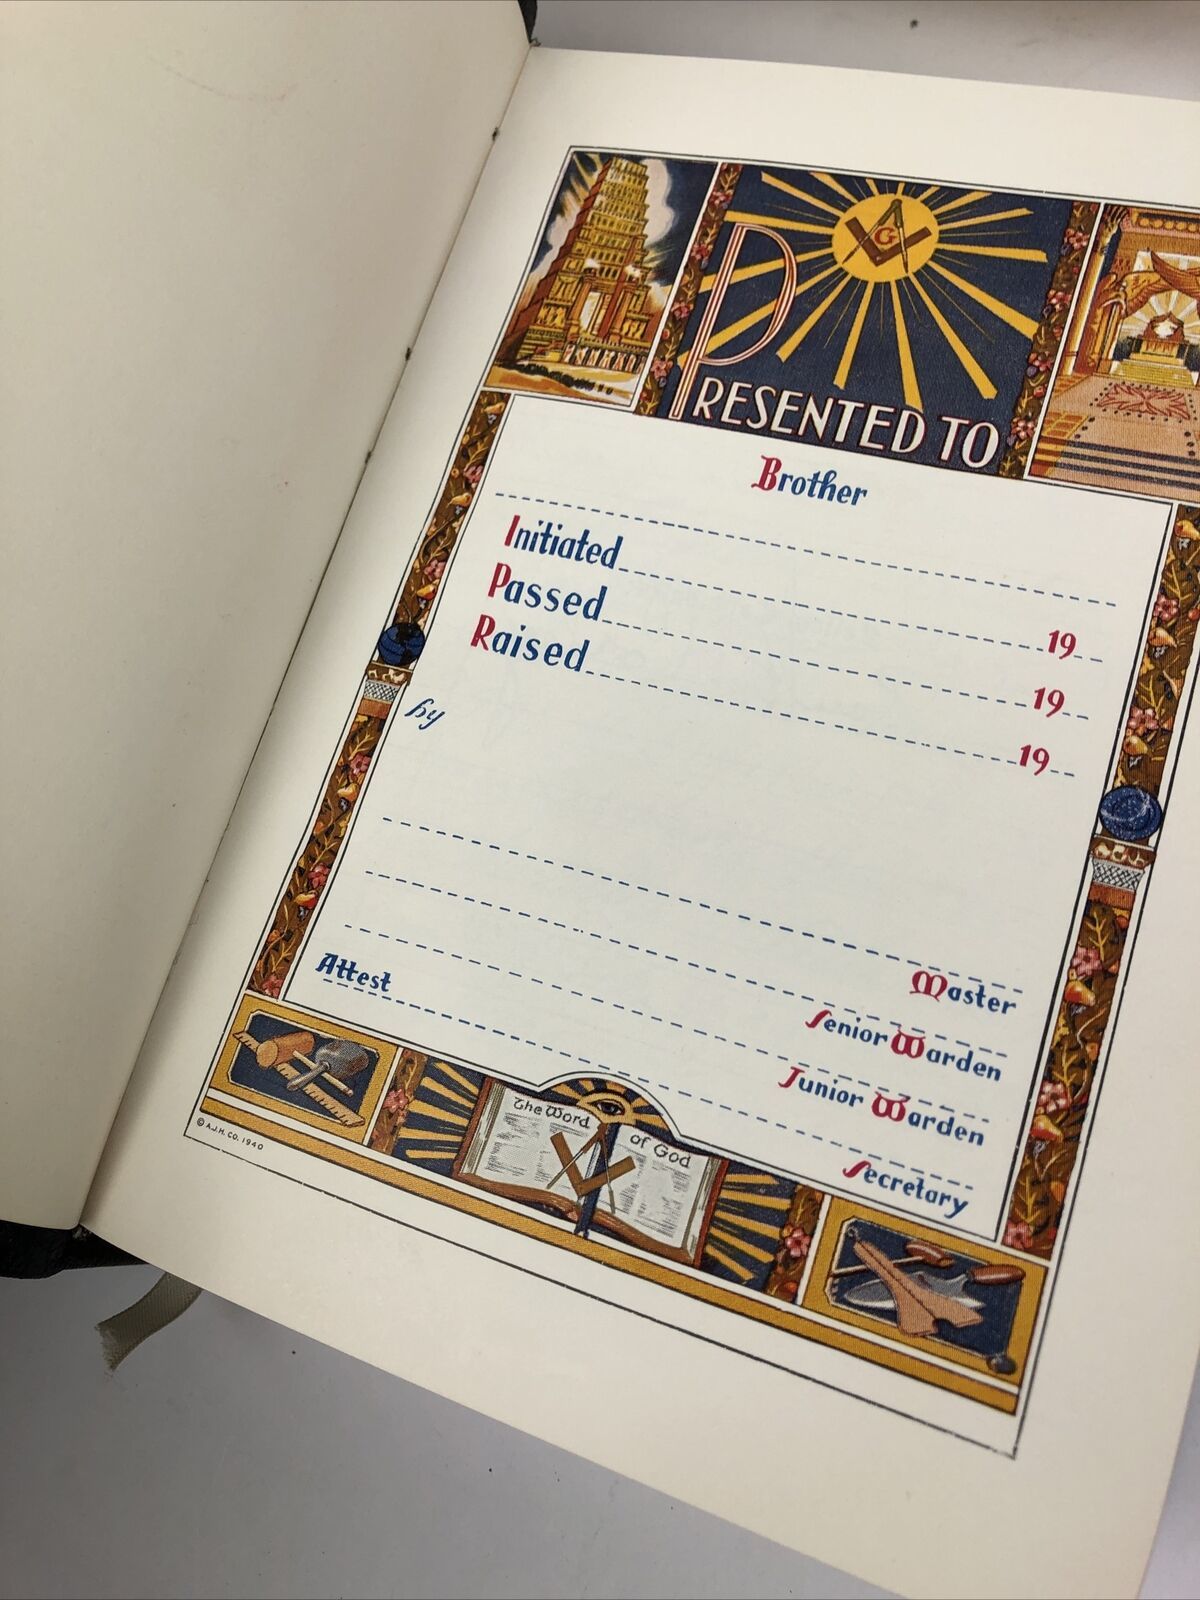 G
PRESENTED TO
Brother
Initiated 19
Passed 19
Raised 19
by
Master
Senior Warden
Junior Warden
Attest Secretary
The Word of God
© A.J.H. CO. 1940